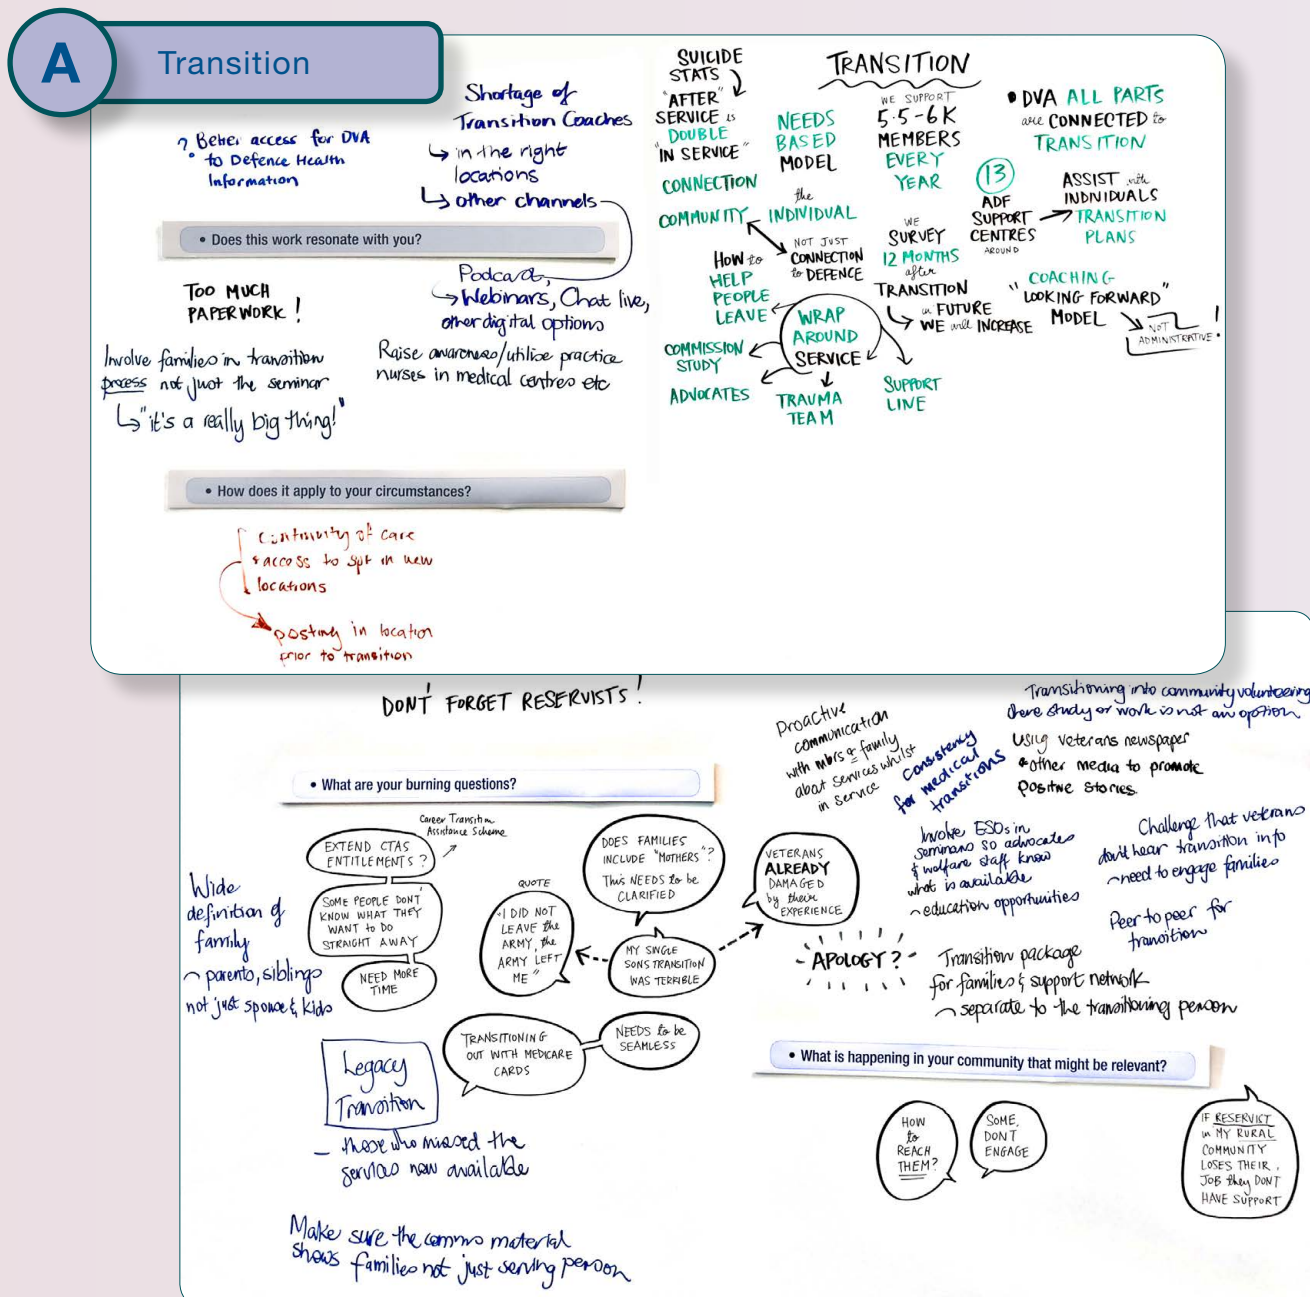 A
Transition
? Better access for DVA
to Defence Health
Information
Shortage of
Transition Coaches
in the right
locations
other channels
Podcast,
Webinars, Chat live,
other digital options
• Does this work resonate with you?
TOO MUCH
PAPERWORK!
Involve families in transition
process not just the seminar
"it's a really big thing!"
Raise awareness/utilise practice
nurses in medical centres etc
• How does it apply to your circumstances?
Continuity of care
+ access to spt in new
locations
posting in location
prior to transition
TRANSITION
SUICIDE
STATS
"AFTER"
SERVICE is
DOUBLE
"IN SERVICE"
CONNECTION
COMMUNITY
NEEDS
BASED
MODEL
the
INDIVIDUAL
NOT JUST
CONNECTION
to DEFENCE
WE SUPPORT
5.5-6K
MEMBERS
EVERY
YEAR
WE
SURVEY
12 MONTHS
after
TRANSITION
in FUTURE
WE will INCREASE
• DVA ALL PARTS
are CONNECTED to
TRANSITION
13
ADF
SUPPORT
CENTRES
AROUND
ASSIST with
INDIVIDUALS
TRANSITION
PLANS
COACHING
"LOOKING FORWARD"
MODEL
NOT
ADMINISTRATIVE!
HOW to
HELP
PEOPLE
LEAVE
WRAP
AROUND
SERVICE
COMMISSION
STUDY
ADVOCATES
TRAUMA
TEAM
SUPPORT
LINE
DON'T FORGET RESERVISTS!
• What are your burning questions?
Career Transition
Assistance Scheme
EXTEND CTAS
ENTITLEMENTS?
SOME PEOPLE DON'T
KNOW WHAT THEY
WANT to DO
STRAIGHT AWAY
NEED MORE
TIME
Wide
definition of
family
parents, siblings
not just spouse & kids
QUOTE
"I DID NOT
LEAVE the
ARMY, the
ARMY LEFT
ME"
DOES FAMILIES
INCLUDE "MOTHERS"?
This NEEDS to be
CLARIFIED
MY SINGLE
SONS TRANSITION
WAS TERRIBLE
VETERANS
ALREADY
DAMAGED
by their
EXPERIENCE
APOLOGY?
TRANSITIONING
OUT WITH MEDICARE
CARDS
NEEDS to be
SEAMLESS
Legacy
Transition
– those who missed the
services now available
Make sure the comms material
shows families not just serving person
Proactive
communication
with mbrs & family
about services whilst
in service
Consistency
for medical
transitions
Transitioning into community volunteering
where study or work is not an option
Using veterans newspaper
& other media to promote
positive stories.
Involve ESOs in
seminars so advocates
& welfare staff know
what is available
education opportunities
Challenge that veterans
don't hear transition info
need to engage families
Peer to peer for
transition
Transition package
for families & support network
separate to the transitioning person
• What is happening in your community that might be relevant?
HOW
to
REACH
THEM?
SOME,
DONT
ENGAGE
IF RESERVICT
in MY RURAL
COMMUNITY
LOSES THEIR
JOB they DONT
HAVE SUPPORT